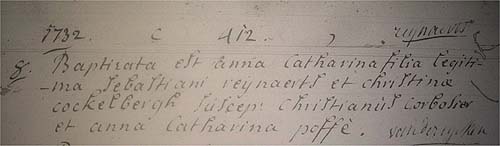 1732. C 412. ) reynaerts
8. Baptizata est anna Catharina filia legiti-
-ma Sebastiani reynaerts et christinæ
cockelbergh suscep: christianus corbosier
et anna Catharina poffé.